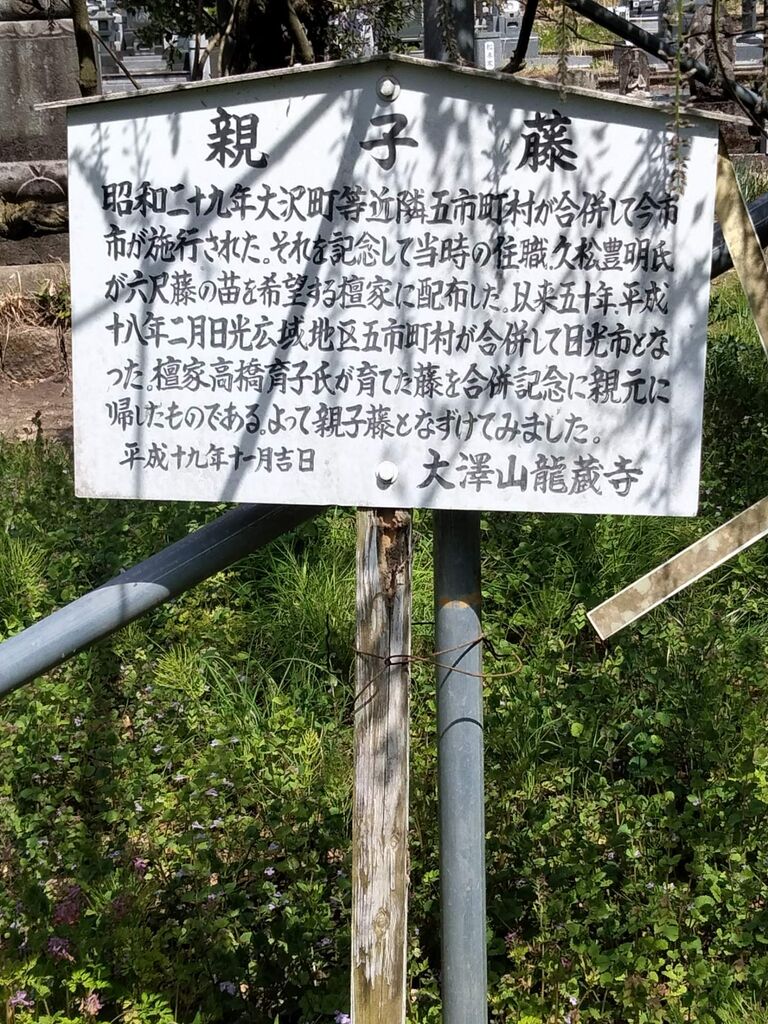 親子藤
昭和二十九年大沢町等近隣五市町村が合併して今市
市が施行された。それを記念して当時の住職、久松豊明氏
が六尺藤の苗を希望する檀家に配布した。以来五十年、平成
十八年二月日光広域地区五市町村が合併して日光市とな
った。檀家高橋育子氏が育てた藤を合併記念に親元に
帰したものである。よって親子藤となずけてみました。
平成十九年十一月吉日
大澤山龍蔵寺